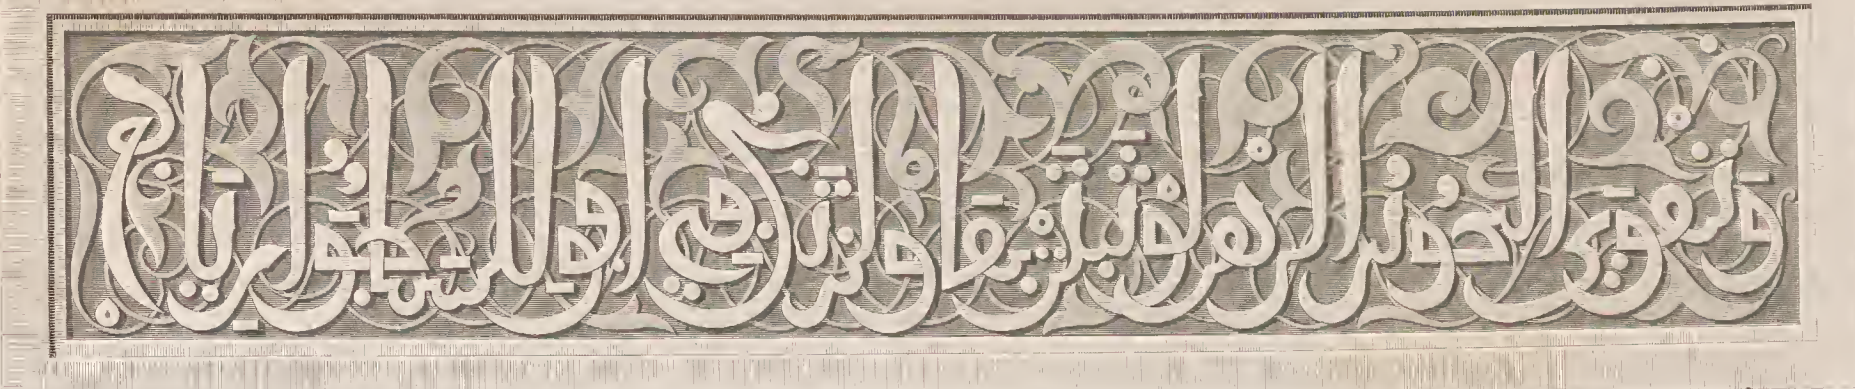 وتهوى النجوم الزهر لو ثبتت بها ولم تك في أفق السماء جواريا